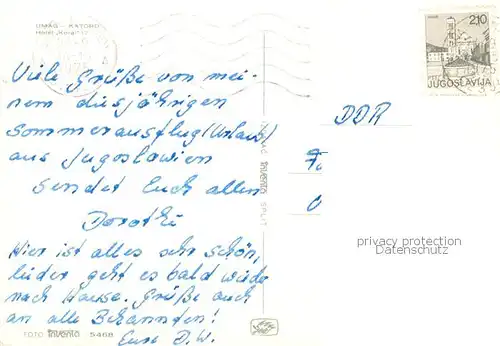 UMAG - KATORO
Hotel „Koralj"
2,10
JUGOSLAVIJA
Viele Grüße von mei-
nem diesjährigen
Sommerausflug (Urlaub)
aus Jugoslawien
sendet Euch allen
Dorothé
Hier ist alles sehr schön,
leider geht es bald wieder
nach Hause. Grüße auch
an alle Bekannten!
Eure D.W.
DDR
privacy protection
Datenschutz
SPLIT
FOTO 5468